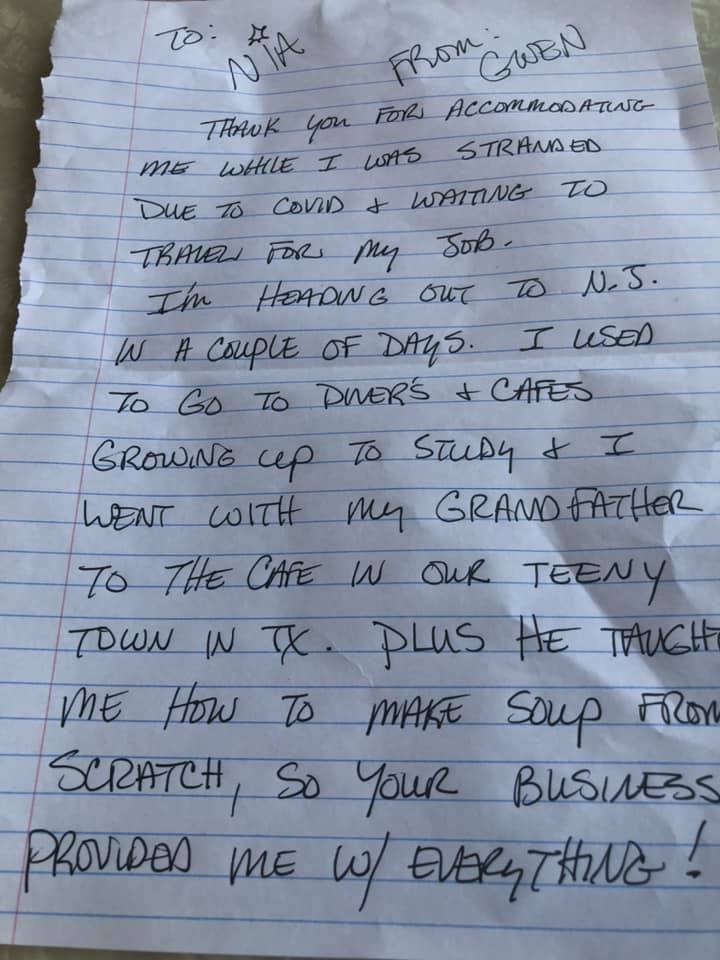 TO: NIA FROM: GWEN
THANK YOU FOR ACCOMMODATING
ME WHILE I WAS STRANDED
DUE TO COVID & WAITING TO
TRAVEL FOR MY JOB.
I'M HEADING OUT TO N.J.
IN A COUPLE OF DAYS. I USED
TO GO TO DINER'S & CAFES
GROWING UP TO STUDY & I
WENT WITH MY GRANDFATHER
TO THE CAFE IN OUR TEENY
TOWN IN TX. PLUS HE TAUGHT
ME HOW TO MAKE SOUP FROM
SCRATCH, SO YOUR BUSINESS
PROVIDED ME W/ EVERYTHING!